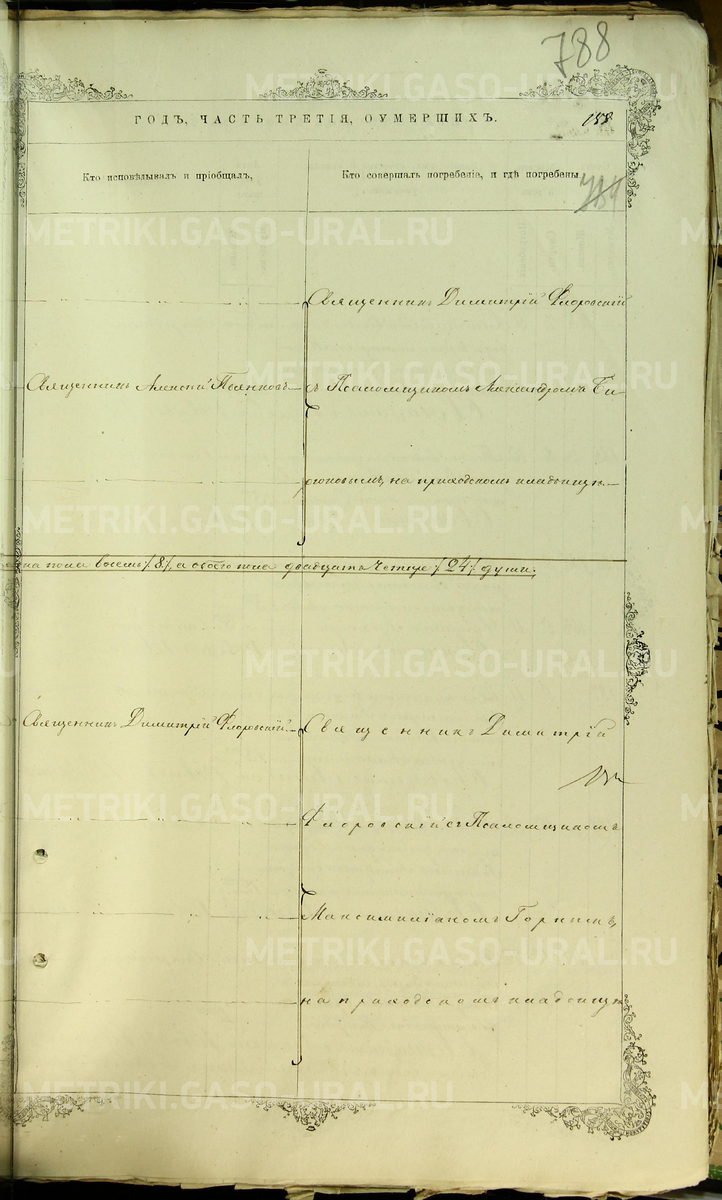 788
ГОДЪ, ЧАСТЬ ТРЕТІЯ, О УМЕРШИХЪ.
158
Кто исповѣдывалъ и пріобщалъ,
Кто совершалъ погребеніе, и гдѣ погребены.
784
Священникъ Димитрій Флоровскій
Священникъ Алексій
съ Псаломщикомъ Александромъ Би-
рюковымъ, на приходскомъ кладбищѣ.
на пола восемь /8/, а обоего пола двадцать четыре /24/ души.
Священникъ Димитрій Флоровскій.
Священникъ Димитрій
Флоровскій съ Псаломщикомъ
Максимиліаномъ Горнымъ,
на приходскомъ кладбищѣ
METRIKI.GASO-URAL.RU